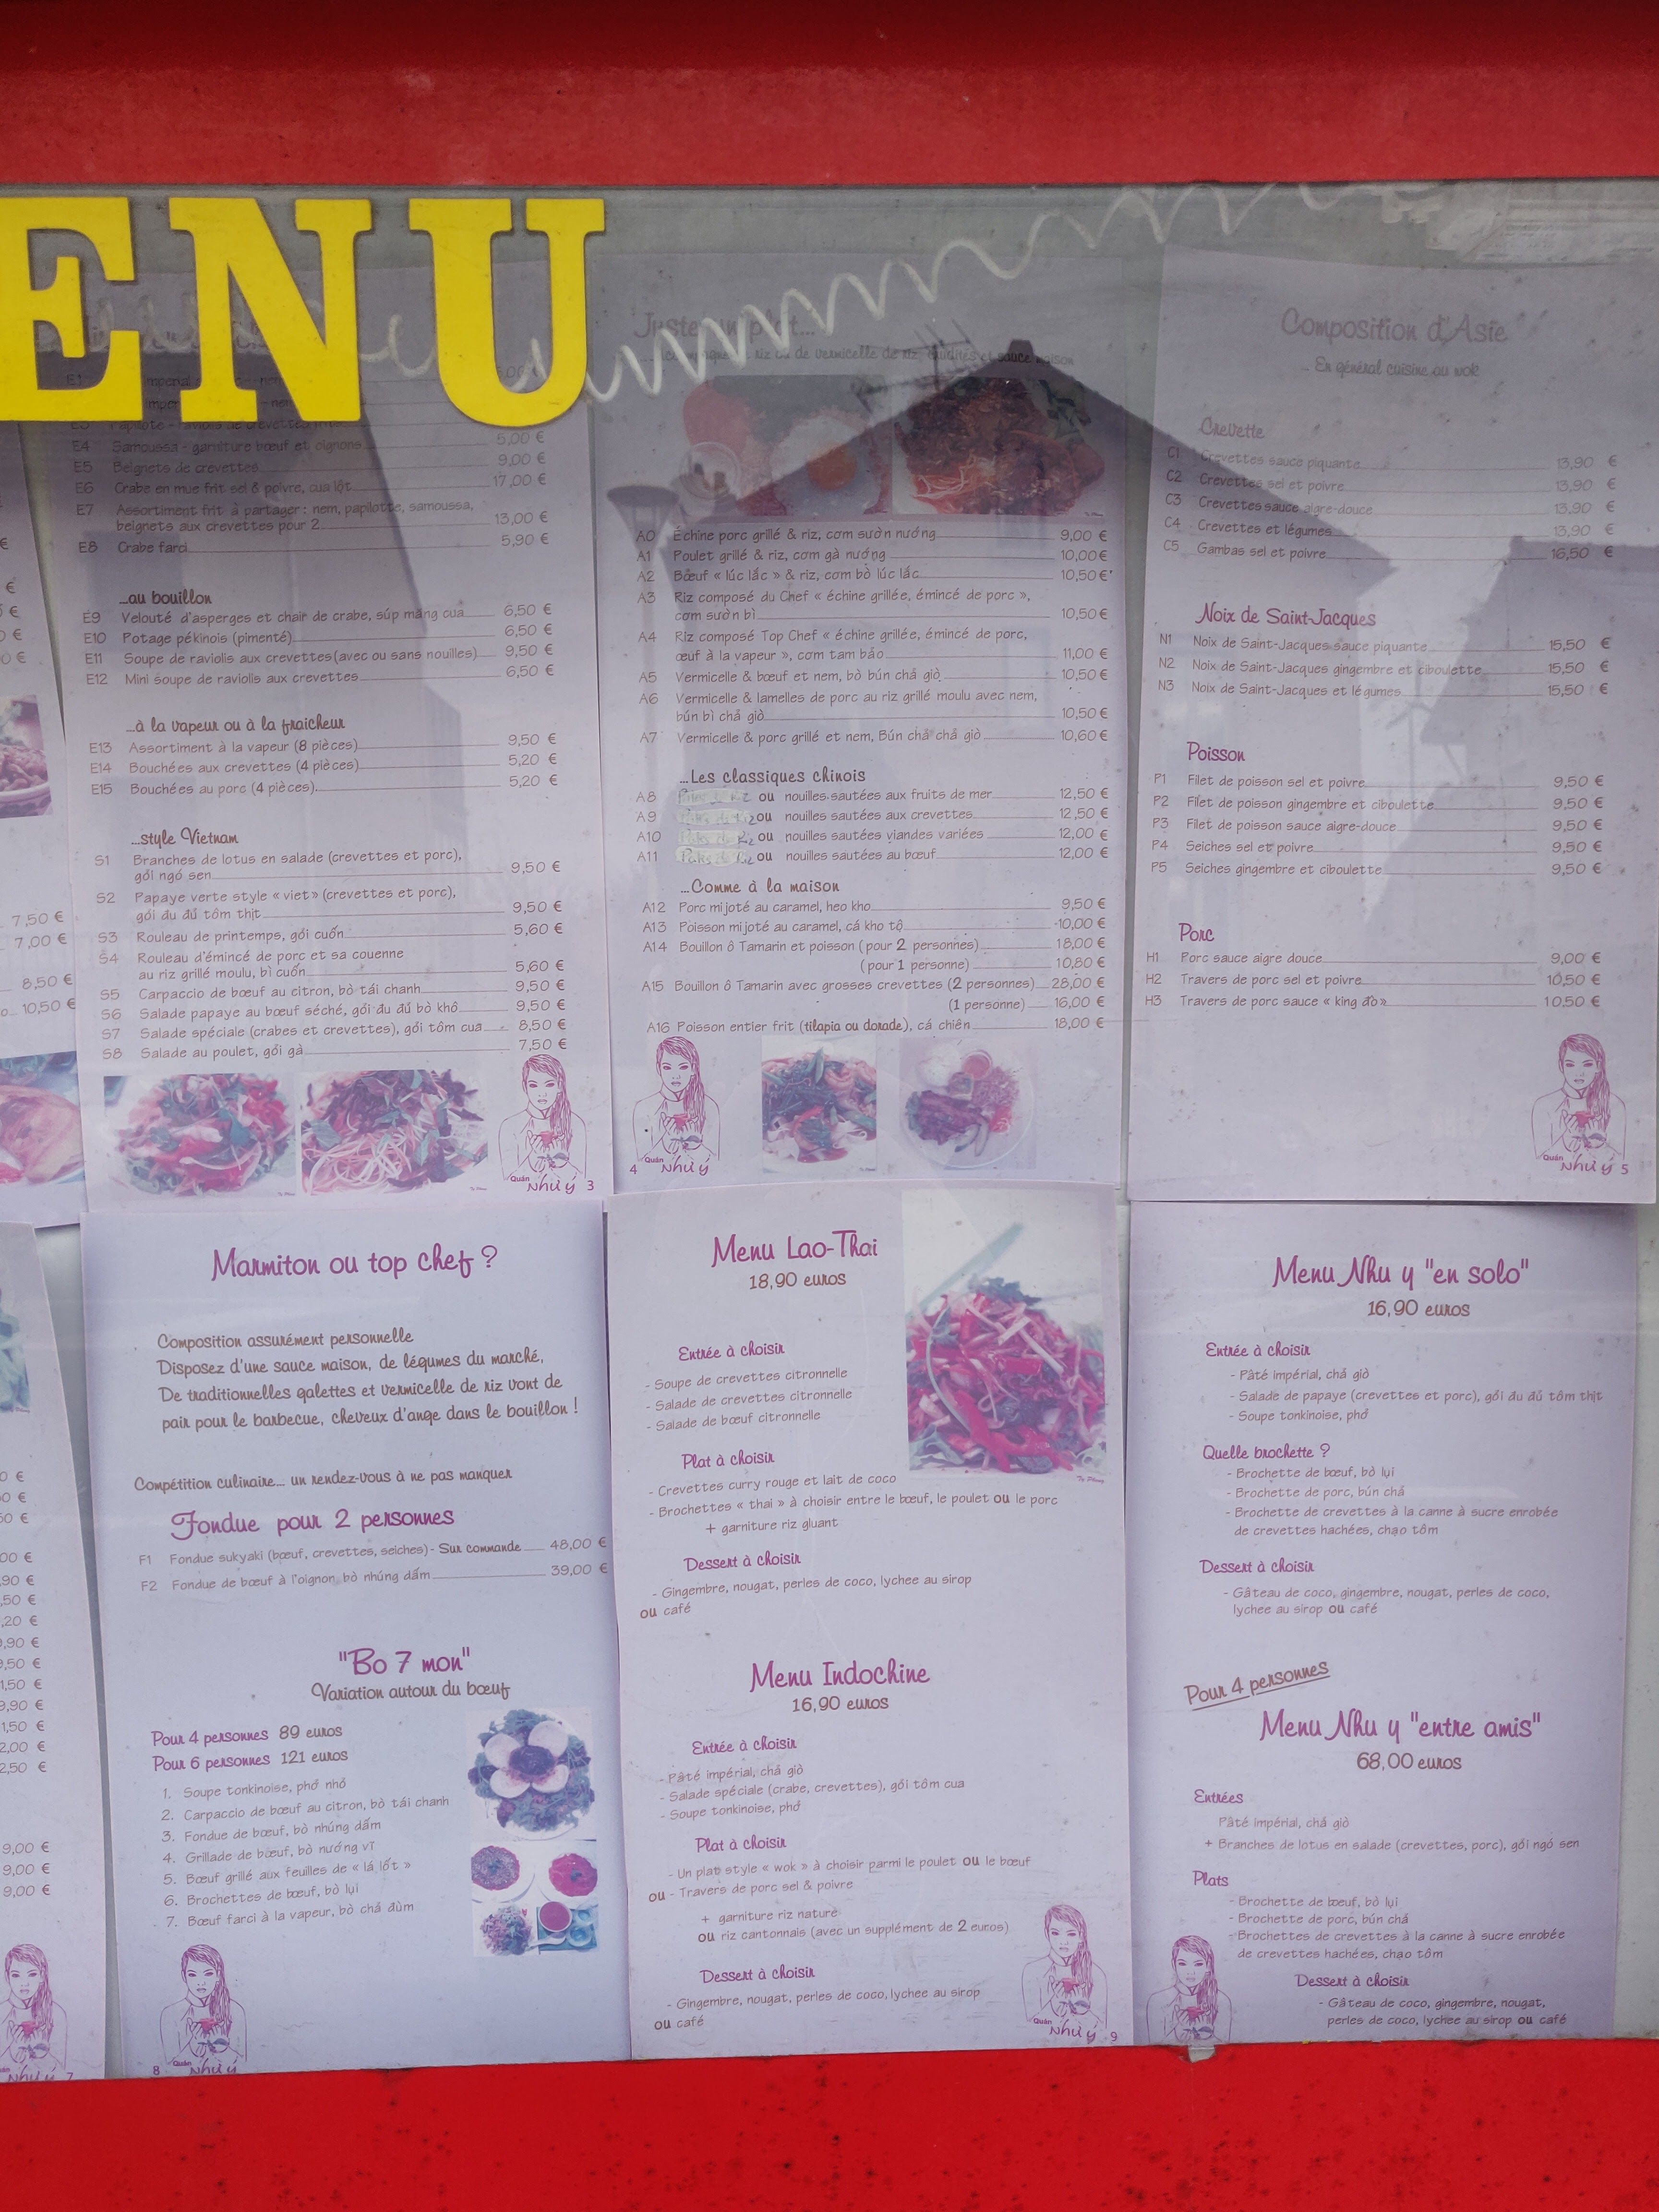 ENU
E4 Samoussa - garniture bœuf et oignons 5,00 €
E5 Beignets de crevettes 9,00 €
E6 Crabe en mue frit sel & poivre, cua lột 17,00 €
E7 Assortiment frit à partager : nem, papilotte, samoussa,
beignets aux crevettes pour 2 13,00 €
E8 Crabe farci 5,90 €
...au bouillon
E9 Velouté d'asperges et chair de crabe, súp măng cua 6,50 €
E10 Potage pékinois (pimenté) 6,50 €
E11 Soupe de raviolis aux crevettes (avec ou sans nouilles) 9,50 €
E12 Mini soupe de raviolis aux crevettes 6,50 €
...à la vapeur ou à la fraîcheur
E13 Assortiment à la vapeur (8 pièces) 9,50 €
E14 Bouchées aux crevettes (4 pièces) 5,20 €
E15 Bouchées au porc (4 pièces) 5,20 €
...style Vietnam
S1 Branches de lotus en salade (crevettes et porc),
gỏi ngó sen 9,50 €
S2 Papaye verte style « viet » (crevettes et porc),
gỏi đu đủ tôm thịt 9,50 €
S3 Rouleau de printemps, gỏi cuốn 5,60 €
S4 Rouleau d'émincé de porc et sa couenne
au riz grillé moulu, bì cuốn 5,60 €
S5 Carpaccio de bœuf au citron, bò tái chanh 9,50 €
S6 Salade papaye au bœuf séché, gỏi đu đủ bò khô 9,50 €
S7 Salade spéciale (crabes et crevettes), gỏi tôm cua 8,50 €
S8 Salade au poulet, gỏi gà 7,50 €
Quán
Như ý 3
Juste un plat...
riz ou de vermicelle de riz, crudités et sauce maison
A0 Échine porc grillé & riz, cơm sườn nướng 9,00 €
A1 Poulet grillé & riz, cơm gà nướng 10,00 €
A2 Bœuf « lúc lắc » & riz, cơm bò lúc lắc 10,50 €
A3 Riz composé du Chef « échine grillée, émincé de porc »,
cơm sườn bì 10,50 €
A4 Riz composé Top Chef « échine grillée, émincé de porc,
œuf à la vapeur », cơm tam bảo 11,00 €
A5 Vermicelle & bœuf et nem, bò bún chả giò 10,50 €
A6 Vermicelle & lamelles de porc au riz grillé moulu avec nem,
bún bì chả giò 10,50 €
A7 Vermicelle & porc grillé et nem, Bún chả chả giò 10,60 €
...Les classiques chinois
A8 ou nouilles sautées aux fruits de mer 12,50 €
A9 ou nouilles sautées aux crevettes 12,50 €
A10 ou nouilles sautées viandes variées 12,00 €
A11 ou nouilles sautées au bœuf 12,00 €
...Comme à la maison
A12 Porc mijoté au caramel, heo kho 9,50 €
A13 Poisson mijoté au caramel, cá kho tộ 10,00 €
A14 Bouillon ô Tamarin et poisson (pour 2 personnes) 18,00 €
(pour 1 personne) 10,80 €
A15 Bouillon ô Tamarin avec grosses crevettes (2 personnes) 28,00 €
(1 personne) 16,00 €
A16 Poisson entier frit (tilapia ou dorade), cá chiên 18,00 €
4 Quán
Như ý
Composition d'Asie
... En général cuisiné au wok
Crevette
C1 Crevettes sauce piquante 13,90 €
C2 Crevettes sel et poivre 13,90 €
C3 Crevettes sauce aigre-douce 13,90 €
C4 Crevettes et légumes 13,90 €
C5 Gambas sel et poivre 16,50 €
Noix de Saint-Jacques
N1 Noix de Saint-Jacques sauce piquante 15,50 €
N2 Noix de Saint-Jacques gingembre et ciboulette 15,50 €
N3 Noix de Saint-Jacques et légumes 15,50 €
Poisson
P1 Filet de poisson sel et poivre 9,50 €
P2 Filet de poisson gingembre et ciboulette 9,50 €
P3 Filet de poisson sauce aigre-douce 9,50 €
P4 Seiches sel et poivre 9,50 €
P5 Seiches gingembre et ciboulette 9,50 €
Porc
H1 Porc sauce aigre douce 9,00 €
H2 Travers de porc sel et poivre 10,50 €
H3 Travers de porc sauce « king đo » 10,50 €
Quán
Như ý 5
7,50 €
7,00 €
8,50 €
10,50 €
9,00 €
9,00 €
9,00 €
Như ý 7
Marmiton ou top chef ?
Composition assurément personnelle
Disposez d'une sauce maison, de légumes du marché,
De traditionnelles galettes et vermicelle de riz vont de
pair pour le barbecue, cheveux d'ange dans le bouillon !
Compétition culinaire... un rendez-vous à ne pas manquer
Fondue pour 2 personnes
F1 Fondue sukyaki (bœuf, crevettes, seiches) - Sur commande 48,00 €
F2 Fondue de bœuf à l'oignon, bò nhúng dấm 39,00 €
"Bo 7 mon"
Variation autour du bœuf
Pour 4 personnes 89 euros
Pour 6 personnes 121 euros
1. Soupe tonkinoise, phở nhỏ
2. Carpaccio de bœuf au citron, bò tái chanh
3. Fondue de bœuf, bò nhúng dấm
4. Grillade de bœuf, bò nướng vĩ
5. Bœuf grillé aux feuilles de « lá lốt »
6. Brochettes de bœuf, bò lụi
7. Bœuf farci à la vapeur, bò chả đùm
8 Quán
Như ý
Menu Lao-Thai
18,90 euros
Entrée à choisir
- Soupe de crevettes citronnelle
- Salade de crevettes citronnelle
- Salade de bœuf citronnelle
Plat à choisir
- Crevettes curry rouge et lait de coco
- Brochettes « thai » à choisir entre le bœuf, le poulet ou le porc
+ garniture riz gluant
Dessert à choisir
- Gingembre, nougat, perles de coco, lychee au sirop
ou café
Menu Indochine
16,90 euros
Entrée à choisir
- Pâté impérial, chả giò
- Salade spéciale (crabe, crevettes), gỏi tôm cua
- Soupe tonkinoise, phở
Plat à choisir
- Un plat style « wok » à choisir parmi le poulet ou le bœuf
ou - Travers de porc sel & poivre
+ garniture riz nature
ou riz cantonnais (avec un supplément de 2 euros)
Dessert à choisir
- Gingembre, nougat, perles de coco, lychee au sirop
ou café
Quán
Như ý 9
Menu Nhu y "en solo"
16,90 euros
Entrée à choisir
- Pâté impérial, chả giò
- Salade de papaye (crevettes et porc), gỏi đu đủ tôm thịt
- Soupe tonkinoise, phở
Quelle brochette ?
- Brochette de bœuf, bò lụi
- Brochette de porc, bún chả
- Brochette de crevettes à la canne à sucre enrobée
de crevettes hachées, chạo tôm
Dessert à choisir
- Gâteau de coco, gingembre, nougat, perles de coco,
lychee au sirop ou café
Pour 4 personnes
Menu Nhu y "entre amis"
68,00 euros
Entrées
Pâté impérial, chả giò
+ Branches de lotus en salade (crevettes, porc), gỏi ngó sen
Plats
- Brochette de bœuf, bò lụi
- Brochette de porc, bún chả
- Brochettes de crevettes à la canne à sucre enrobée
de crevettes hachées, chạo tôm
Dessert à choisir
- Gâteau de coco, gingembre, nougat,
perles de coco, lychee au sirop ou café